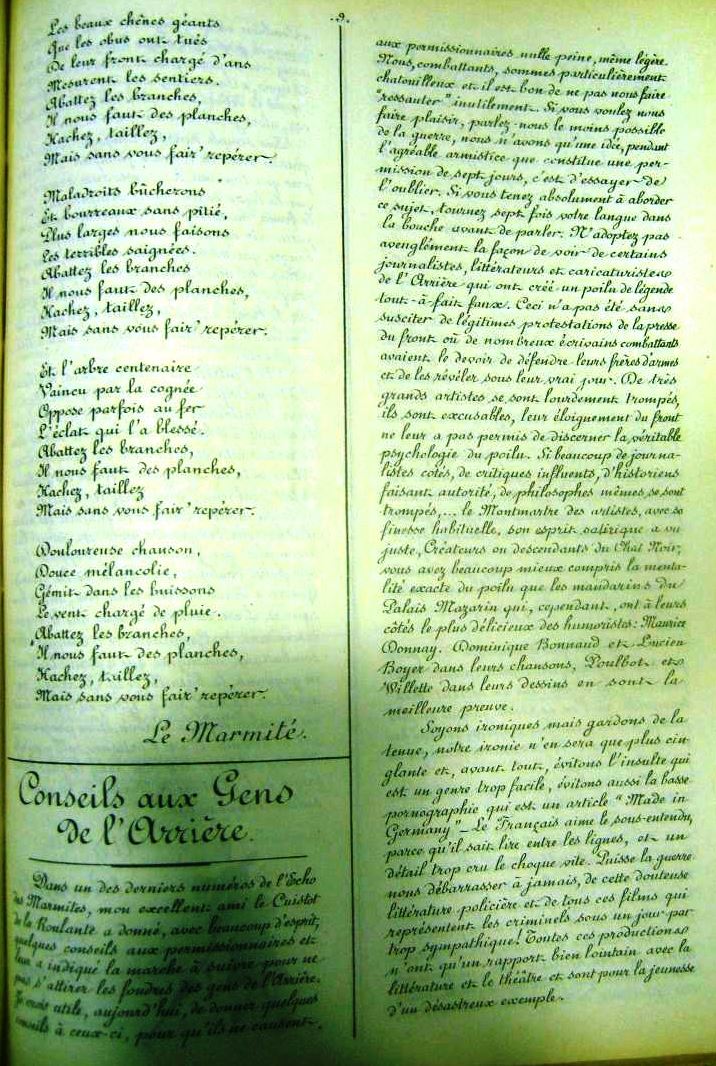 .9.
Les beaux chênes géants
Que les obus ont tués
De leur front chargé d'ans
Mesurent les sentiers.
Abattez les branches,
Il nous faut des planches,
Hachez, taillez,
Mais sans vous fair' repérer.
Maladroits bûcherons
Et bourreaux sans pitié,
Plus larges nous faisons
Les terribles saignées.
Abattez les branches
Il nous faut des planches,
Hachez, taillez,
Mais sans vous fair' repérer.
Et l'arbre centenaire
Vaincu par la cognée
Oppose parfois au fer
L'éclat qui l'a blessé.
Abattez les branches,
Il nous faut des planches,
Hachez, taillez
Mais sans vous fair' repérer.
Douloureuse chanson,
Douce mélancolie,
Gémit dans les buissons
Le vent chargé de pluie.
Abattez les branches,
Il nous faut des planches,
Hachez, taillez,
Mais sans vous fair' repérer
Le Marmité.
Conseils aux Gens
de l'Arrière.
Dans un des derniers numéros de l'Echo
des Marmites, mon excellent ami le Cuistot
de la Roulante a donné, avec beaucoup d'esprit,
quelques conseils aux permissionnaires et
leur a indiqué la marche à suivre pour ne
pas s'attirer les foudres des gens de l'Arrière.
Je crois utile, aujourd'hui, de donner quelques
conseils à ceux-ci, pour qu'ils ne causent
aux permissionnaires nulle peine, même légère.
Nous, combattants, sommes particulièrement
chatouilleux et il est bon de ne pas nous faire
"ressauter" inutilement. Si vous voulez nous
faire plaisir, parlez-nous le moins possible
de la guerre, nous n'avons qu'une idée, pendant
l'agréable armistice que constitue une per-
mission de sept jours, c'est d'essayer de
l'oublier. Si vous tenez absolument à aborder
ce sujet, tournez sept fois votre langue dans
la bouche avant de parler. N'adoptez pas
aveuglément la façon de voir de certains
journalistes, littérateurs et caricaturistes
de l'Arrière qui ont créé un poilu de légende
tout-à-fait faux. Ceci n'a pas été sans
susciter de légitimes protestations de la presse
du front où de nombreux écrivains combattants
avaient le devoir de défendre leurs frères d'armes
et de les révéler sous leur vrai jour. De très
grands artistes se sont lourdement trompés,
ils sont excusables, leur éloignement du front
ne leur a pas permis de discerner la véritable
psychologie du poilu. Si beaucoup de journa-
listes cotés, de critiques influents, d'historiens
faisant autorité, de philosophes mêmes, se sont
trompés,... le Montmartre des artistes, avec sa
finesse habituelle, son esprit satirique a vu
juste, Créateurs ou descendants du Chat Noir,
vous avez beaucoup mieux compris la menta-
lité exacte du poilu que les mandarins du
Palais Mazarin qui, cependant, ont à leurs
côtés le plus délicieux des humoristes: Maurice
Donnay. Dominique Bonnaud et Lucien
Boyer dans leurs chansons, Poulbot et
Willette dans leurs dessins en sont la
meilleure preuve.
Soyons ironiques mais gardons de la
tenue, notre ironie n'en sera que plus cin-
glante et, avant tout, évitons l'insulte qui
est un genre trop facile, évitons aussi la basse
pornographie qui est un article "Made in
Germany" - Le Français aime le sous-entendu,
parce qu'il sait lire entre les lignes, et un
détail trop cru le choque vite. Puisse la guerre
nous débarrasser à jamais, de cette douteuse
littérature policière et de tous ces films qui
représentent les criminels sous un jour par
trop sympathique! Toutes ces productions
n'ont qu'un rapport bien lointain avec la
littérature et le théâtre et sont pour la jeunesse
d'un désastreux exemple.